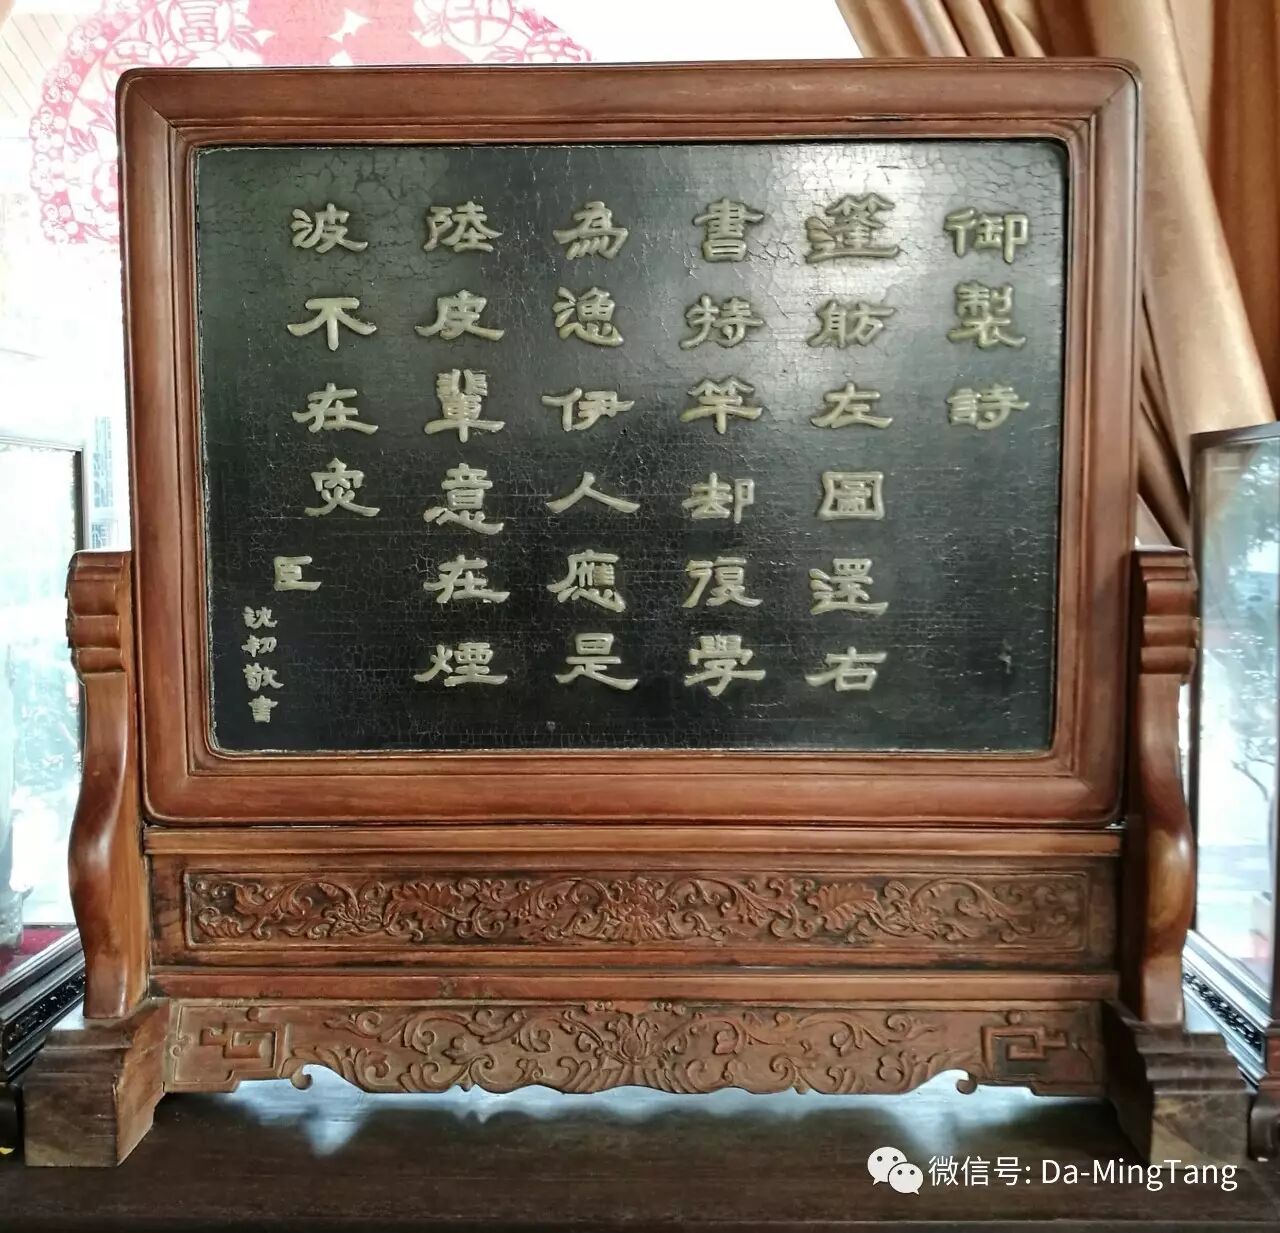 御製詩
篷舫左圖還右
書持竿却復學
為漁伊人應是
陸皮輩意在煙
波不在魚
臣沈初敬書
富
微信号: Da-MingTang